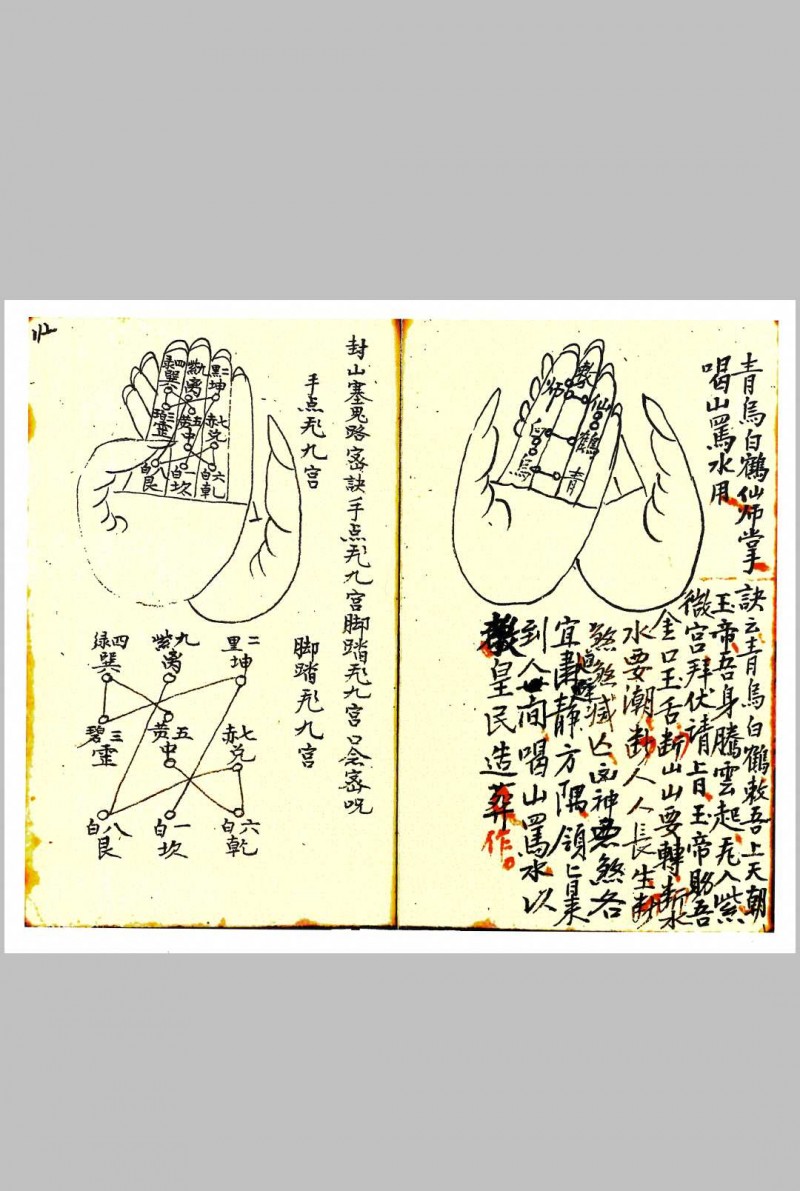 青烏白鶴仙师掌
喝山罵水用
訣云青烏白鶴敕吾上天朝
玉帝吾身騰雲起飛入紫
微宮拜伏請上玉帝賜吾
金口玉舌断山山要轉断水
水要潮断人人長生断
煞煞滅亡凶神悪煞各
宜肅静方隅領旨
到人世间喝山罵水以
皇民造葬作。
师
仙
鶴
白
烏
青
封山塞鬼路密訣手点飛九宮脚踏飛九宮口念密呪
手点飛九宮
二黑坤
九紫离
四绿巽
七赤兑
五黄中
三碧震
六白乾
一白坎
八白艮
脚踏飛九宮
二里坤
九紫离
四绿巽
七赤兑
五黄中
三碧震
六白乾
一白坎
八白艮